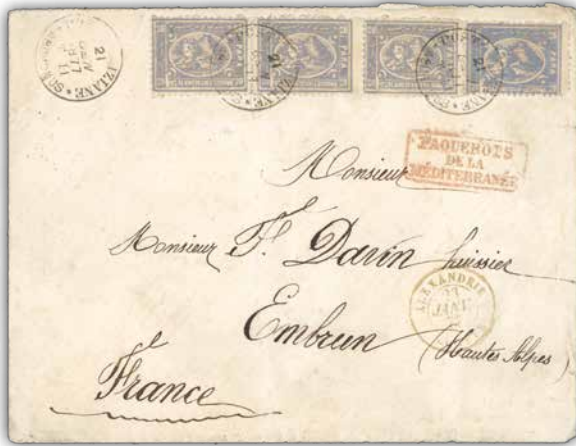 21
GEN
77
IZIANE
PAQUEBOTS
DE LA
MÉDITERRANÉE
Monsieur
Monsieur F. Davin huissier
ALEXANDRIE
23
JANV
Embrun (Hautes Alpes)
France